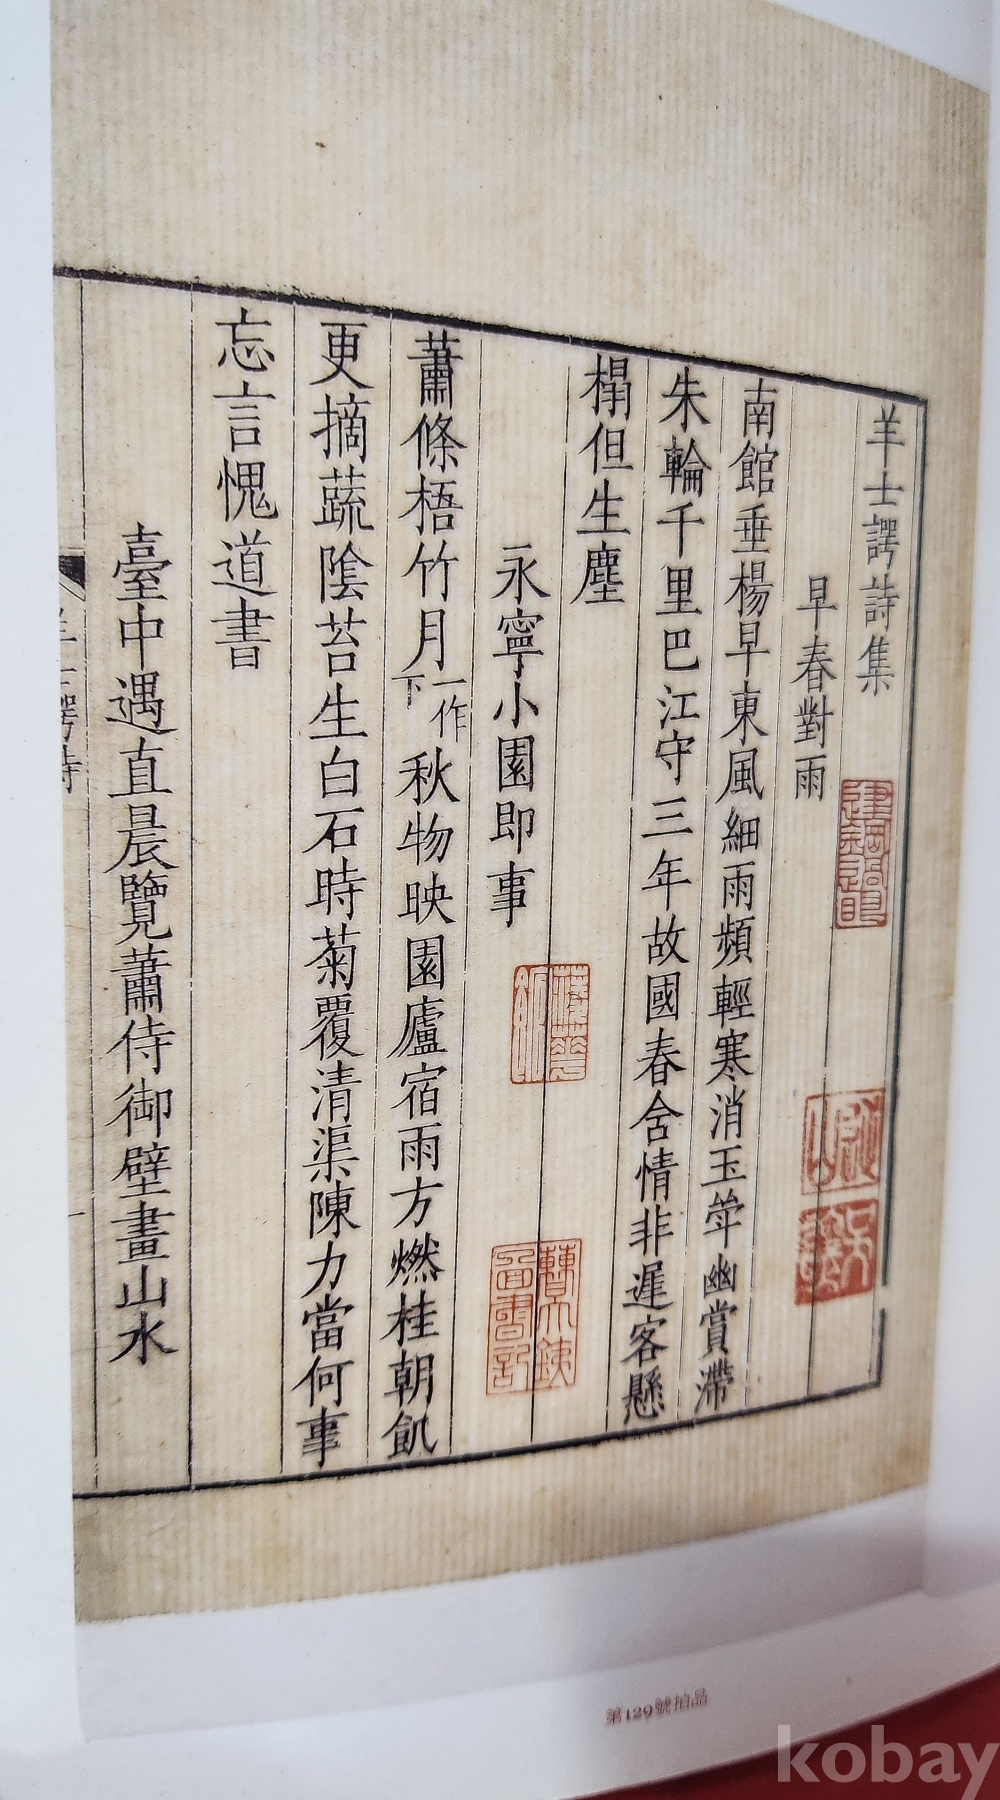 羊士諤詩集
早春對雨
南館垂楊早東風細雨頻輕寒消玉斝幽賞滯
朱輪千里巴江守三年故國春含情非遲客懸
榻但生塵
永寧小園即事
蕭條梧竹月一作下秋物映園廬宿雨方燃桂朝飢
更摘蔬陰苔生白石時菊覆清渠陳力當何事
忘言愧道書
臺中遇直晨覽蕭侍御壁畫山水
第129號拍品
kobay